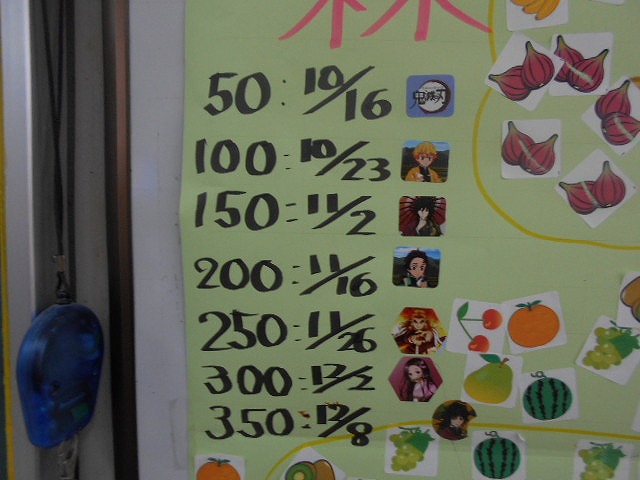 50:10/16
鬼滅の刃
100:10/23
150:11/2
200:11/16
250:11/26
300:12/2
350:12/8